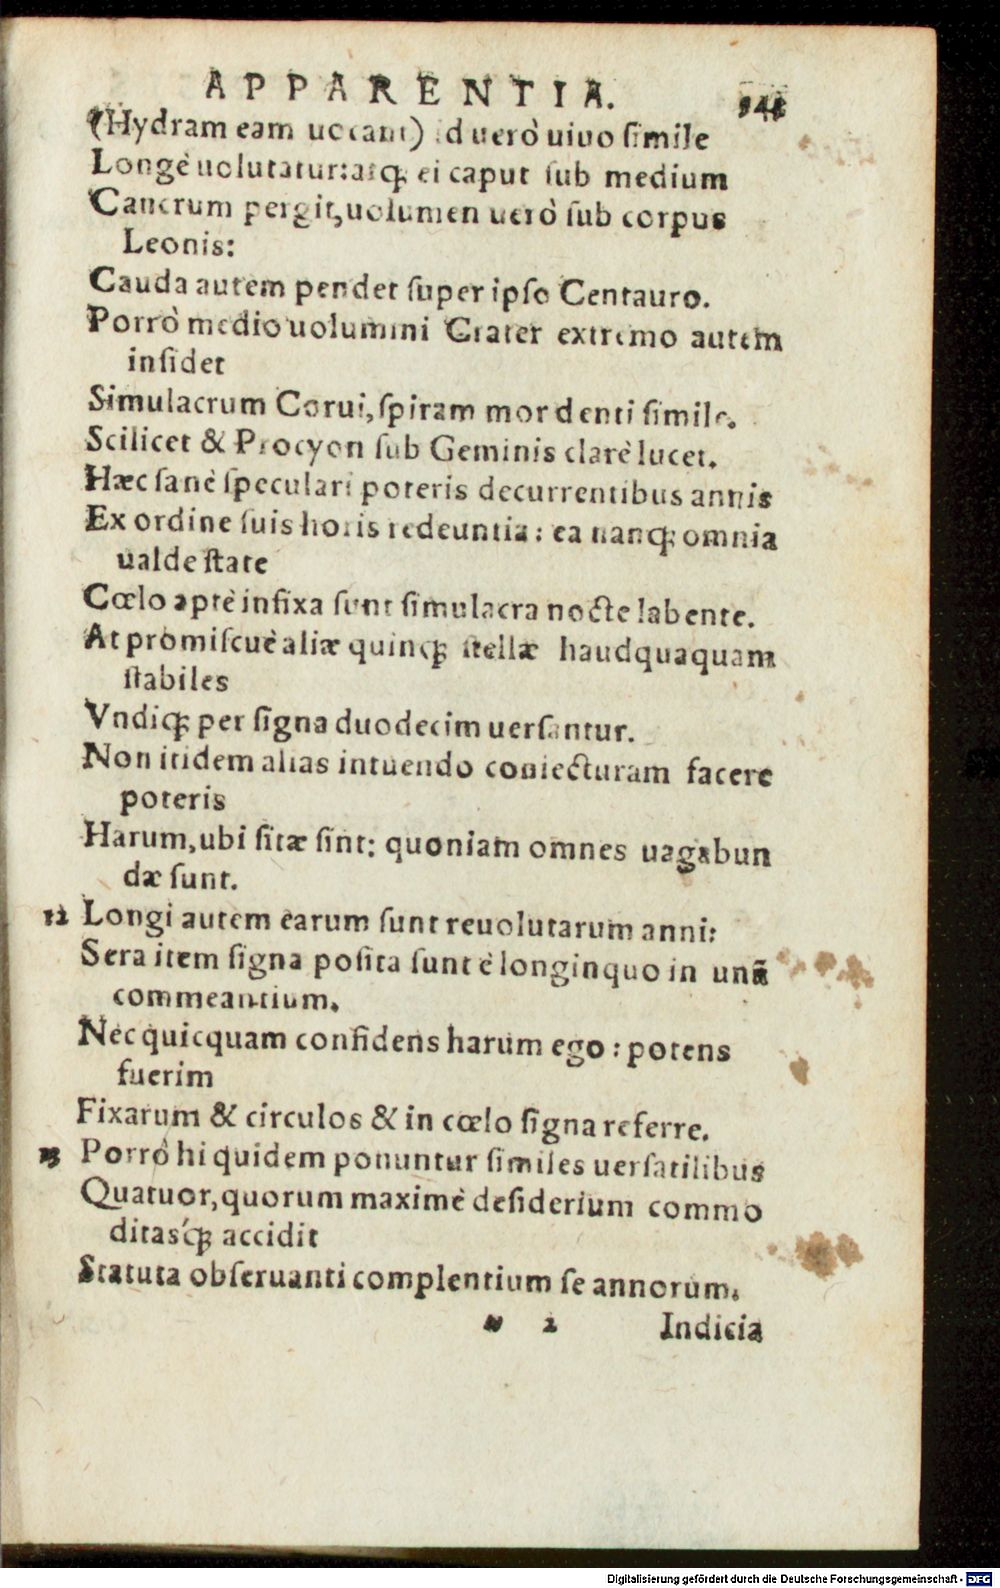 APPARENTIA. 141
(Hydram eam uocant) id uerò uiuo simile
Longè uolutatur: atq; ei caput sub medium
Cancrum pergit, uolumen uerò sub corpus
Leonis:
Cauda autem pendet super ipso Centauro.
Porrò medio uolumini Crater extremo autem
insidet
Simulacrum Corui, spiram mordenti simile.
Scilicet & Procyon sub Geminis clarè lucet.
Hæc sanè speculari poteris decurrentibus annis
Ex ordine suis horis redeuntia: ea nanq; omnia
ualde state
Cœlo aptè infixa sunt simulacra nocte labente.
At promiscuè aliæ quinq; stellæ haudquaquam
stabiles
Vndiq; per signa duodecim uersantur.
Non itidem alias intuendo coniecturam facere
poteris
Harum, ubi sitæ sint: quoniam omnes uagabun
dæ sunt.
12 Longi autem earum sunt reuolutarum anni:
Sera item signa posita sunt è longinquo in unā
commeantium.
Nec quicquam confidens harum ego: potens
fuerim
Fixarum & circulos & in cœlo signa referre.
13 Porrò hi quidem ponuntur similes uersatilibus
Quatuor, quorum maximè desiderium commo
ditasq́; accidit
Statuta obseruanti complentium se annorum.
2 Indicia
Digitalisierung gefördert durch die Deutsche Forschungsgemeinschaft - DFG